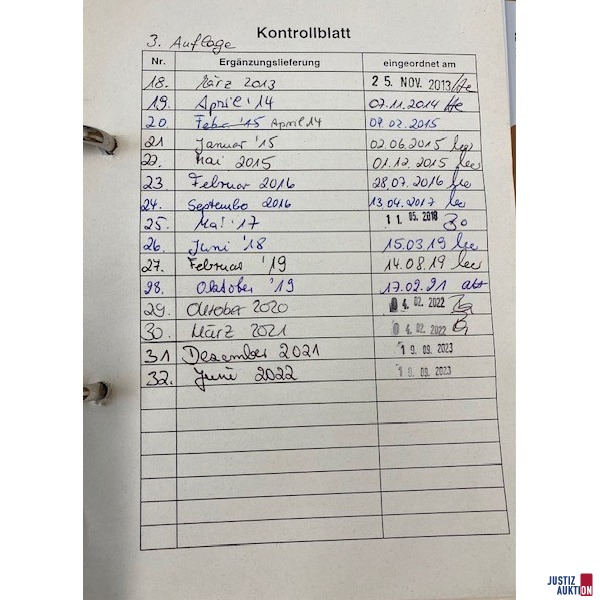 Kontrollblatt
3. Auflage
Nr. Ergänzungslieferung eingeordnet am
18. März 2013 25. NOV. 2013/He
19. April '14 07.11.2014 He
20 Febr. '15 April 14 09.02.2015
21 Januar '15 02.06.2015
22. Mai 2015 01.12.2015
23 Februar 2016 28.07.2016
24. Septembe 2016 13.04.2017
25. Mai '17 11. 05. 2018
26. Juni '18 15.03.19
27. Februar '19 14.08.19
28. Oktober '19 17.02.21
29. Oktober 2020 04. 02. 2022
30. März 2021 04. 02. 2022
31 Dezember 2021 19. 09. 2023
32. Juni 2022 19. 09. 2023
JUSTIZ
AUKTION